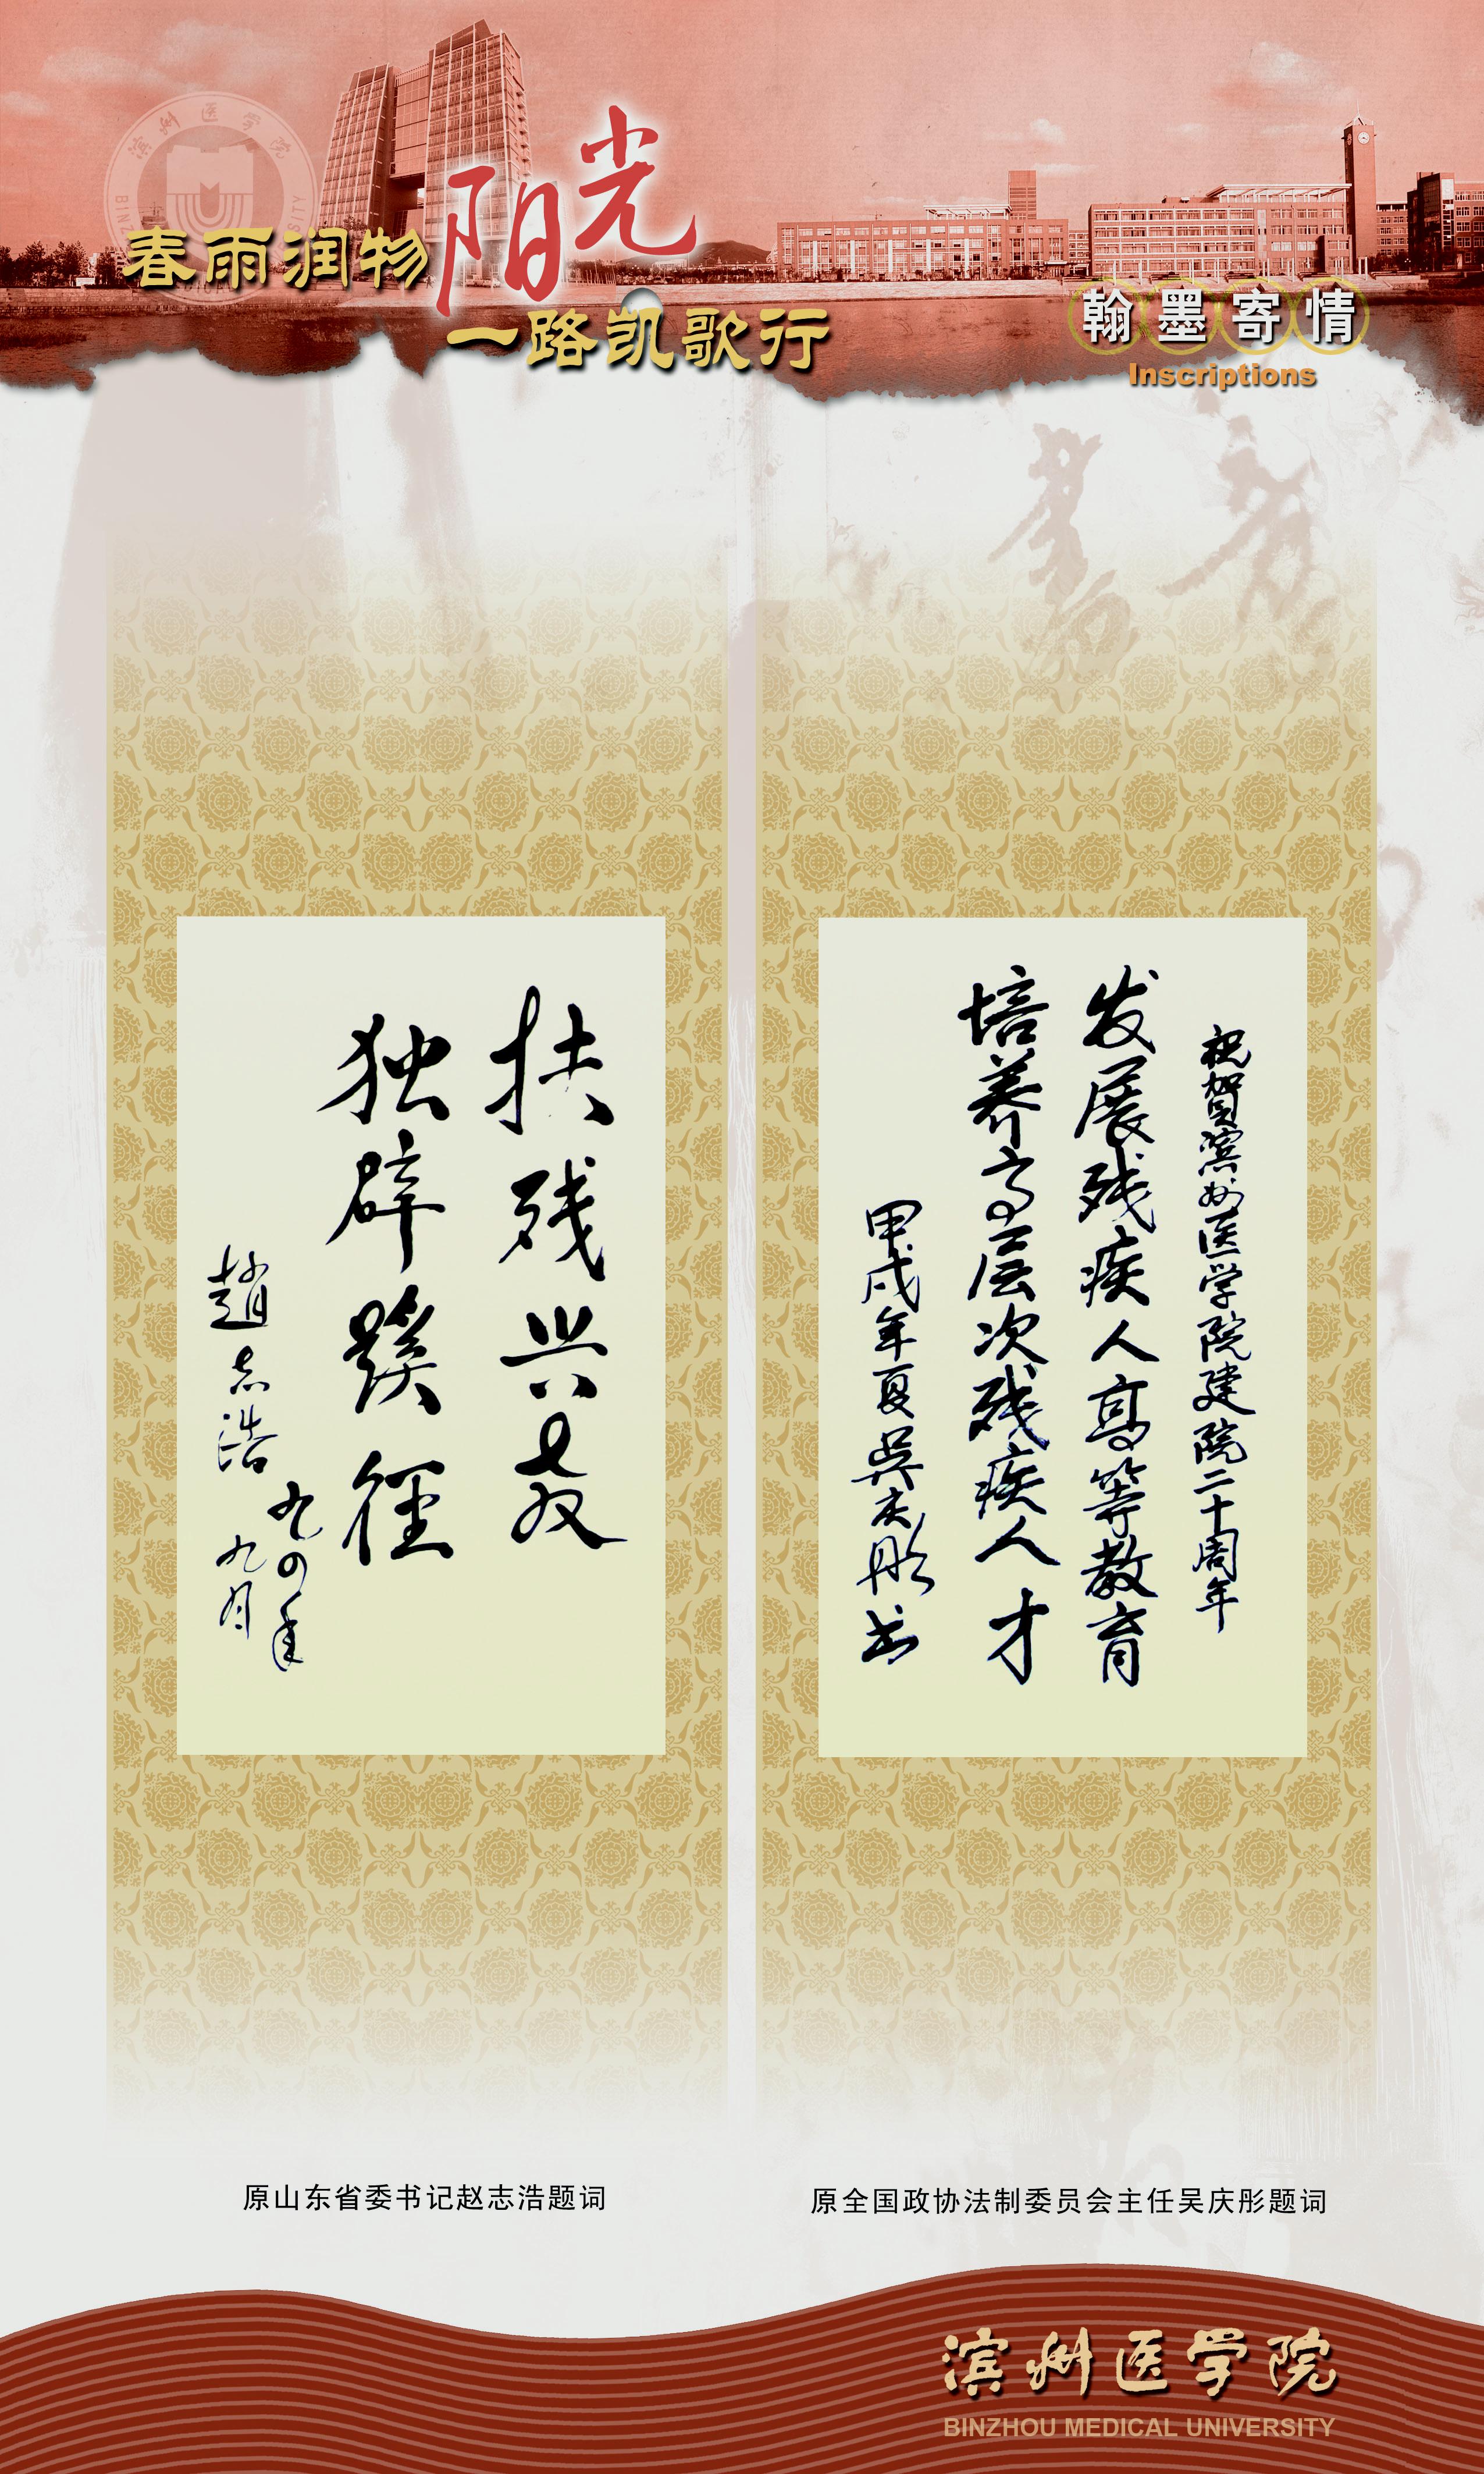 滨州医学院
春雨润物
阳光
一路凯歌行
翰墨寄情
Inscriptions
扶残兴教
独辟蹊径
趙志浩
九四年
九月
祝贺滨州医学院建院二十周年
发展残疾人高等教育
培养高层次残疾人才
甲戌年夏吴庆彤书
原山东省委书记赵志浩题词
原全国政协法制委员会主任吴庆彤题词
滨州医学院
BINZHOU MEDICAL UNIVERSITY